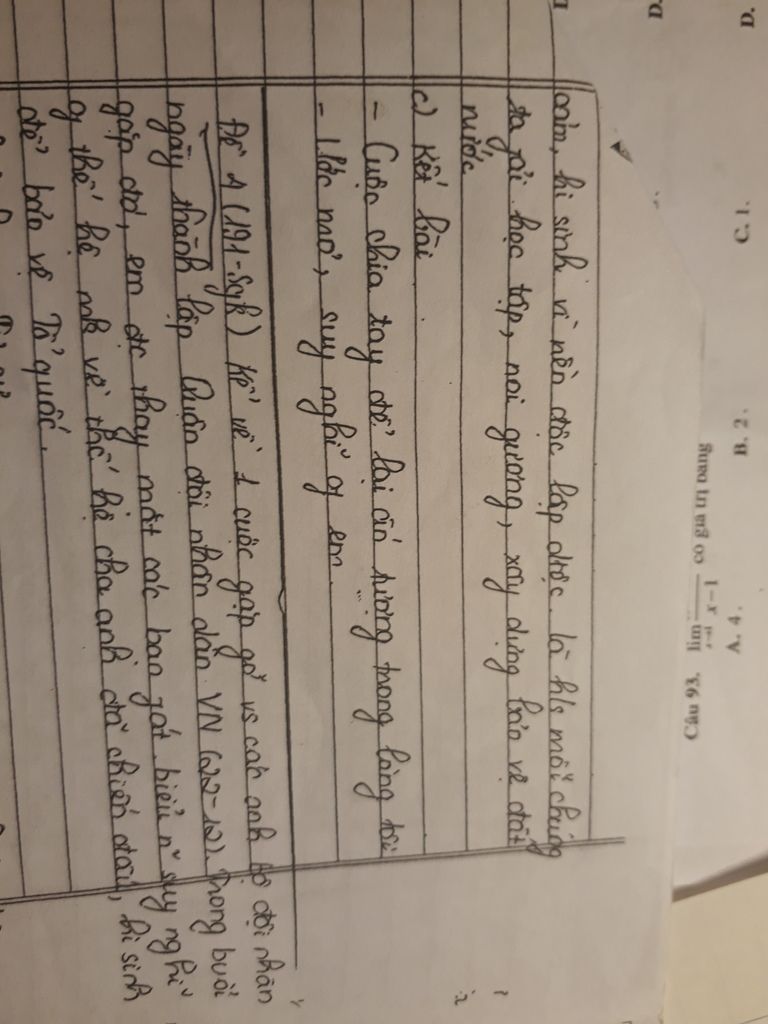 cảm, hi sinh vì nền độc lập dtộc. là h/s mỗi chúng
ta phải học tập, noi gương, xây dựng bảo vệ đất
nước
c) Kết bài
- Cuộc chia tay để lại ấn tượng trong lòng tôi
- Ước mơ, suy nghĩ of em.
Đề 4 (191-Sgk) Kể về 1 cuộc gặp gỡ vs các anh bộ đội nhân
ngày thành lập Quân đội nhân dân VN (22-12). Trong buổi
gặp đó, em đc thay mặt các bạn phát biểu n~ suy nghĩ
of thế hệ mk về thế hệ cha anh đã chiến đấu, hi sinh
để bảo vệ Tổ quốc.
Câu 93. lim x – 1 có giá trị bằng
A. 4. B. 2. C. 1. D.